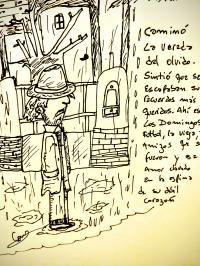 Caminó
La vereda
del olvido.
Sintió que se
Escapaban su
recuerdos más
queridos. Ahí es
Los Domingos
fútbol, la vieja,
amigos que se
fueron y ese
amor clavado
en la espina
de su débil
corazón